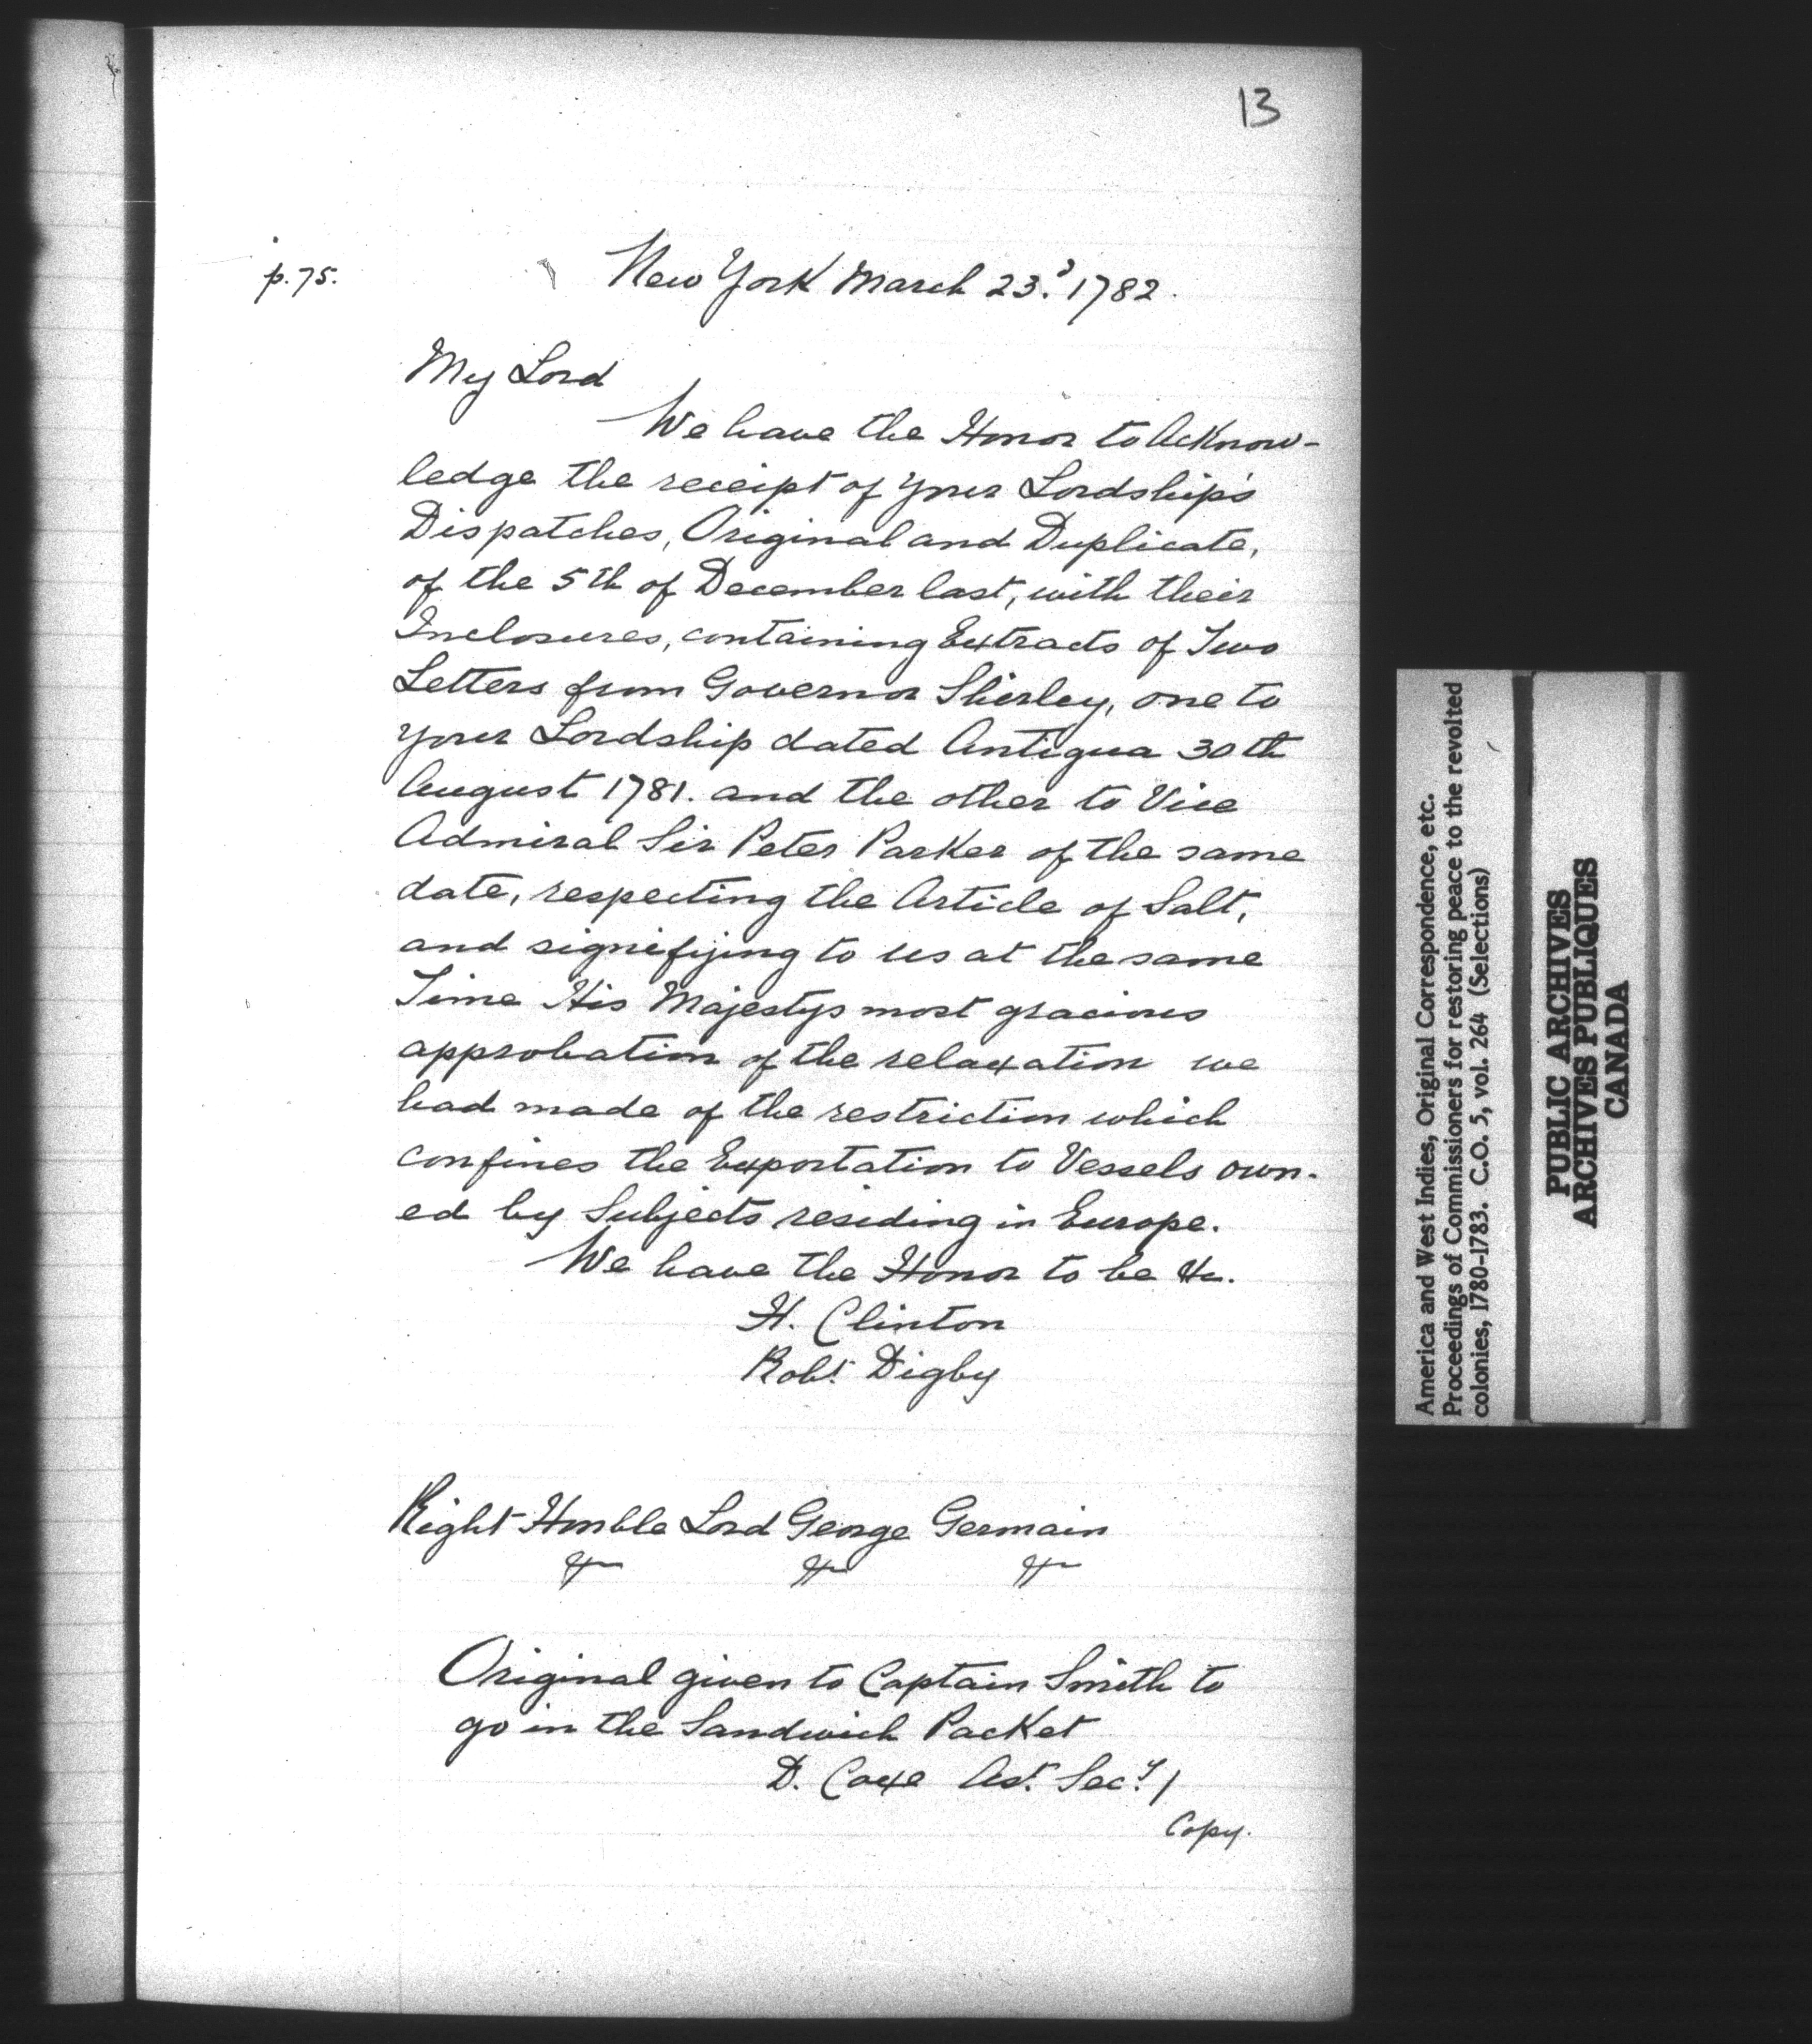 13
p. 75.
New York March 23.d 1782.
My Lord
We have the Honor to Acknow-
ledge the receipt of your Lordship's
Dispatches, Original and Duplicate,
of the 5th of December last, with their
Inclosures, containing Extracts of Two
Letters from Governor Shirley, one to
your Lordship dated Antigua 30th
August 1781. and the other to Vice
Admiral Sir Peter Parker of the same
date, respecting the Article of Salt,
and signifying to us at the same
Time His Majestys most gracious
approbation of the relaxation we
had made of the restriction which
confines the Exportation to Vessels own-
ed by Subjects residing in Europe.
We have the Honor to be &c.
H. Clinton
Robt. Digby
Right Honble Lord George Germain
&c &c &c
Original given to Captain Smith to
go in the Sandwich Packet
D. Coxe Ast. Secy. /
Copy.
America and West Indies, Original Correspondence, etc.
Proceedings of Commissioners for restoring peace to the revolted
colonies, 1780-1783. C.O. 5, vol. 264 (Selections)
PUBLIC ARCHIVES
ARCHIVES PUBLIQUES
CANADA